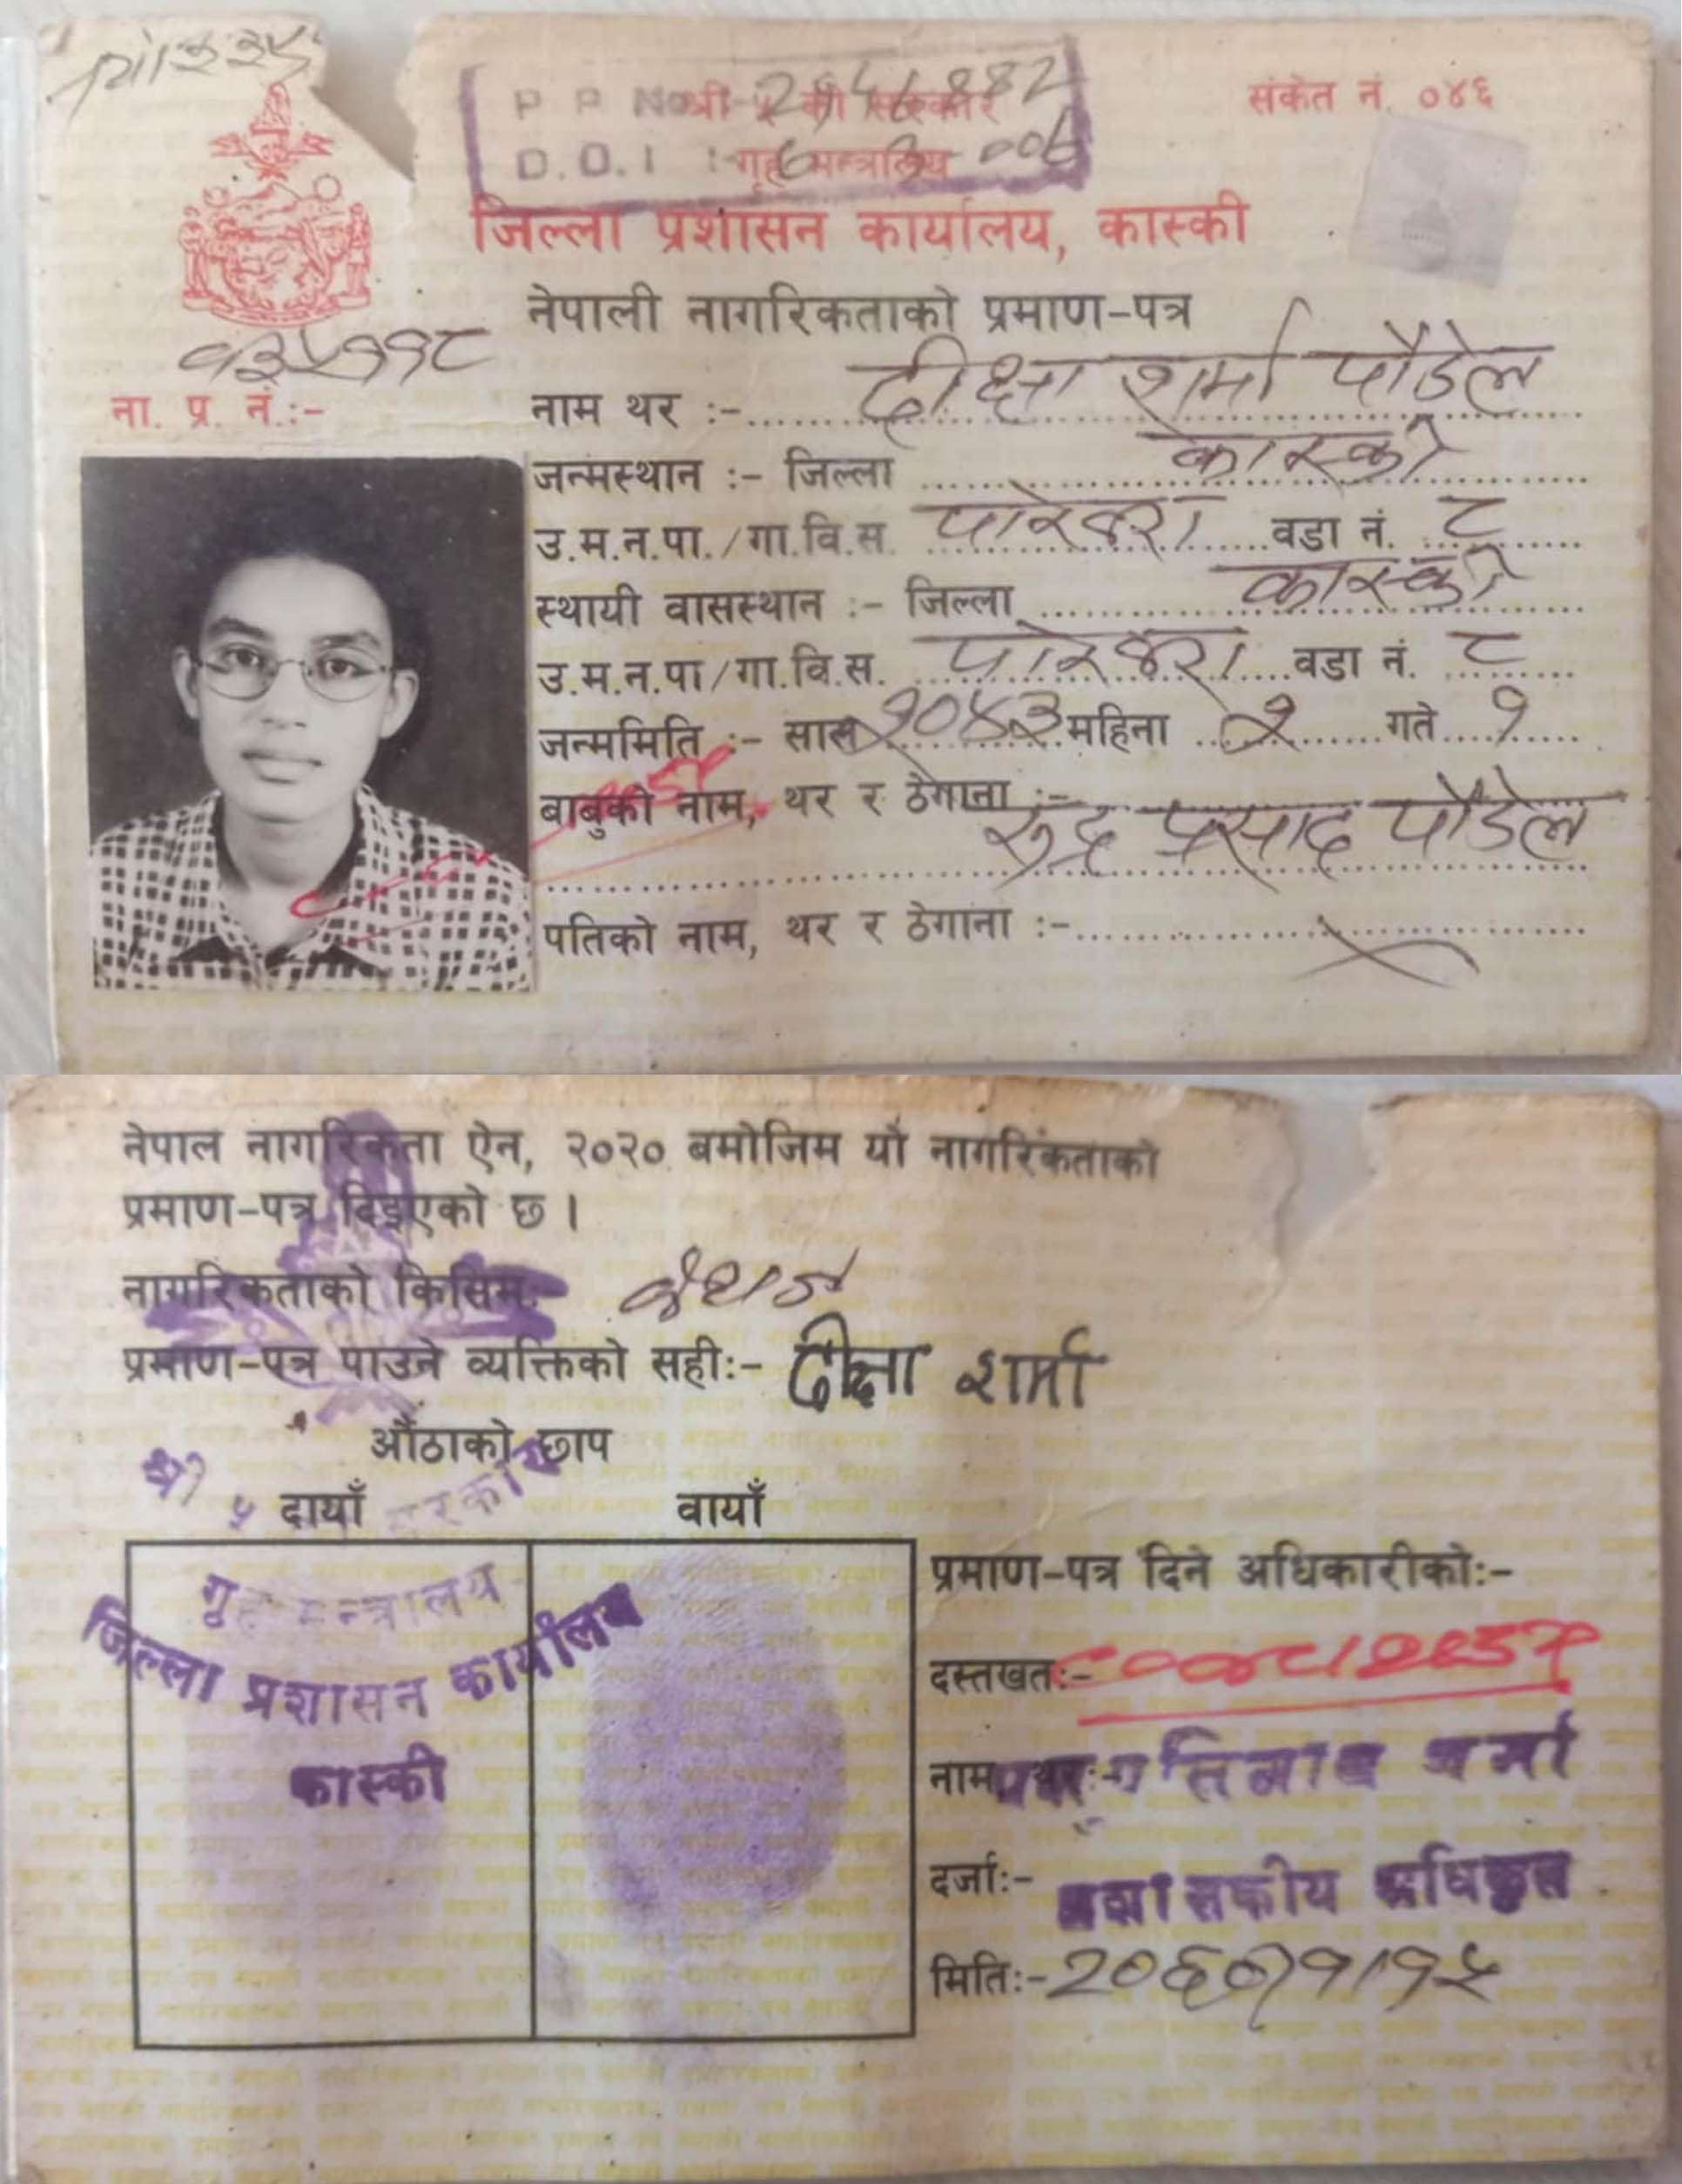 संकेत नं. ०४६
P P No
श्री ५ को सरकार
D.O.I :
गृह मन्त्रालय
जिल्ला प्रशासन कार्यालय, कास्की
नेपाली नागरिकताको प्रमाण-पत्र
ना. प्र. नं.:-
नाम थर :- दीक्षा शर्मा पौडेल
जन्मस्थान :- जिल्ला कास्की
उ.म.न.पा./गा.वि.स. पोखरा वडा नं. ८
स्थायी वासस्थान :- जिल्ला कास्की
उ.म.न.पा/गा.वि.स. पोखरा वडा नं. ८
जन्ममिति :- साल २०४३ महिना २ गते १
बाबुको नाम, थर र ठेगाना :-
रुद्र प्रसाद पौडेल
पतिको नाम, थर र ठेगाना :-
नेपाल नागरिकता ऐन, २०२० बमोजिम यो नागरिकताको
प्रमाण-पत्र दिइएको छ ।
नागरिकताको किसिम वंशज
प्रमाण-पत्र पाउने व्यक्तिको सही:- दीक्षा शर्मा
औंठाको छाप
श्री ५ सरकार
दायाँ वायाँ
गृह मन्त्रालय
जिल्ला प्रशासन कार्यालय
कास्की
प्रमाण-पत्र दिने अधिकारीको:-
दस्तखत:-
नाम थर:- शर्मा
दर्जा:- प्रशासकीय अधिकृत
मिति:-